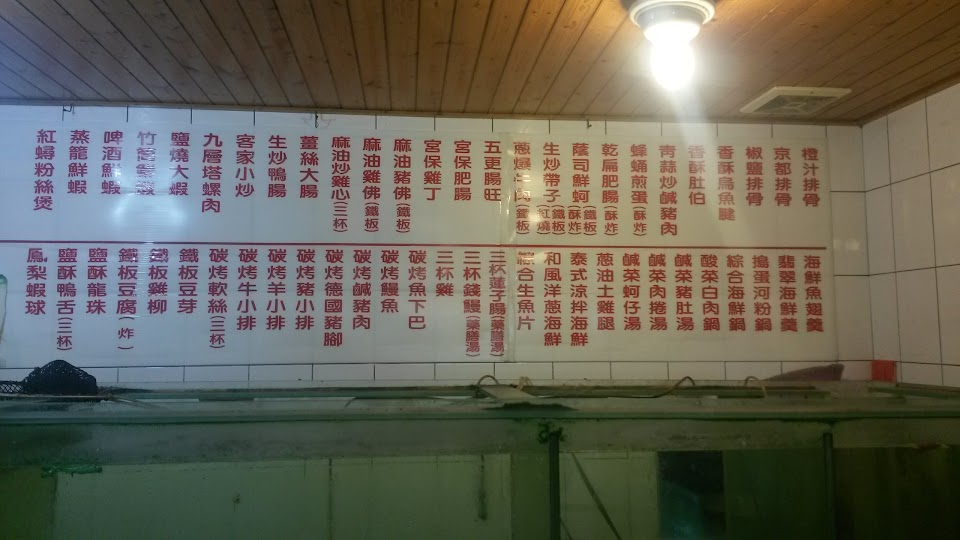 橙汁排骨
京都排骨
椒鹽排骨
香酥烏魚腱
香酥肚伯
青蒜炒鹹豬肉
蜂蛹煎蛋(酥炸)
乾扁肥腸(酥炸)
蔭司鮮蚵(鐵板 酥炸)
生炒帶子(鐵板 紅燒)
蔥爆牛肉(鐵板)
五更腸旺
宮保肥腸
宮保雞丁
麻油豬佛(鐵板)
麻油雞佛(鐵板)
麻油炒雞心(三杯)
薑絲大腸
生炒鴨腸
客家小炒
九層塔螺肉
鹽燒大蝦
竹筒
啤酒鮮蝦
蒸籠鮮蝦
紅蟳粉絲煲
海鮮魚翅羹
翡翠海鮮羹
搗蛋河粉鍋
綜合海鮮鍋
酸菜白肉鍋
鹹菜豬肚湯
鹹菜肉捲湯
鹹菜蚵仔湯
蔥油土雞腿
泰式涼拌海鮮
和風洋蔥海鮮
綜合生魚片
三杯蓮子腸(藥膳湯)
三杯錢鰻(藥膳湯)
三杯雞
碳烤魚下巴
碳烤鰻魚
碳烤鹹豬肉
碳烤德國豬腳
碳烤豬小排
碳烤羊小排
碳烤牛小排
碳烤軟絲(三杯)
鐵板豆芽
鐵板雞柳
鐵板豆腐(炸)
鹽酥龍珠
鹽酥鴨舌(三杯)
鳳梨蝦球